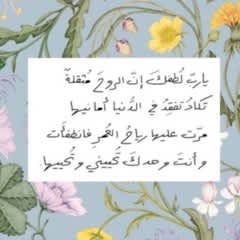 ياربّ لُطفكَ إنّ الروحَ مُثقلةٌ
تكادُ تفقِدُ في الدّنيا أمانيها
مرّت عليها رياحُ القهرِ فانطفأت
وأنتَ وحدكَ تحييني وتُحييها.